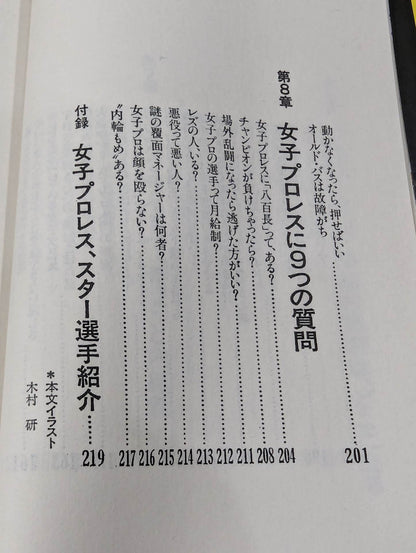 動かなくなったら、押せばいい
オールド・バスは故障がち……………201
第8章 女子プロレスに9つの質問
女子プロレスに「八百長」って、ある？……………204
チャンピオンが負けちゃったら？……………208
場外乱闘になったら逃げた方がいい？……………211
女子プロの選手って月給制？……………212
レズの人、いる？……………213
悪役って悪い人？……………214
謎の覆面マネージャーは何者？……………215
女子プロは顔を殴らない？……………216
“内輪もめ”ある？……………217
付録 女子プロレス、スター選手紹介……219
＊本文イラスト
木村 研